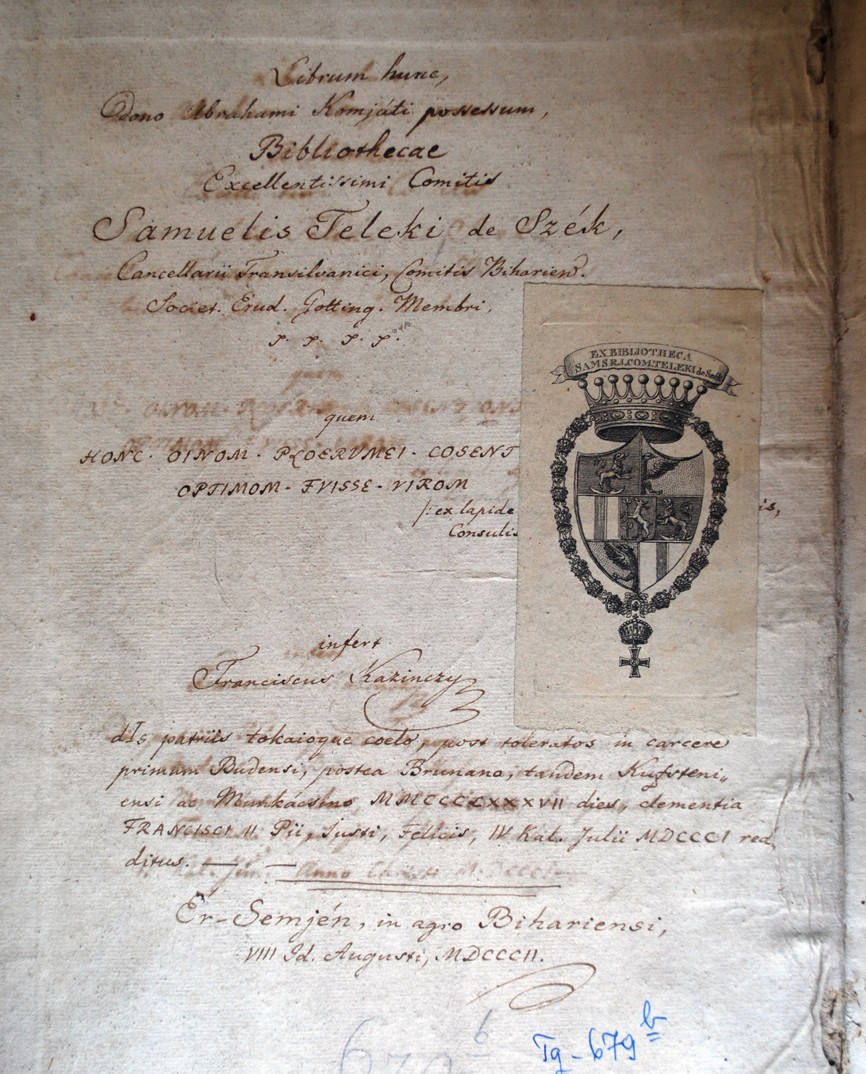 Librum hunc,
Dono Abrahami Komjáti possessum,
Bibliothecae
Excellentissimi Comitis
Samuelis Teleki de Szék,
Cancellarii Transilvanici, Comitis Bihariens.
Societ. Erud. Gotting. Membri,
quem
HONC · OINOM · PLOERVMEI · COSENT
OPTIMOM · FVISSE · VIROM
/: ex lapide
is,
Consulis
EX BIBLIOTHECA
SAM S.R.I. COM. TELEKI de Szék
infert
Franciscus Kazinczy
dIs patriis tokaioque coelo, post toleratos in carcere
primum Budensi, postea Brunano, tandem Kufsteni„
ensi ac Munkácsino MMCCCLXXXVII dies, clementia
FRANCISCI II Pii, Justi, Felicis, IV Kal. Julii MDCCCI red„
ditus. — —
Ér-Semjén, in agro Bihariensi,
VIII Id. Augusti, MDCCCII.
679 b
Tq-679 b